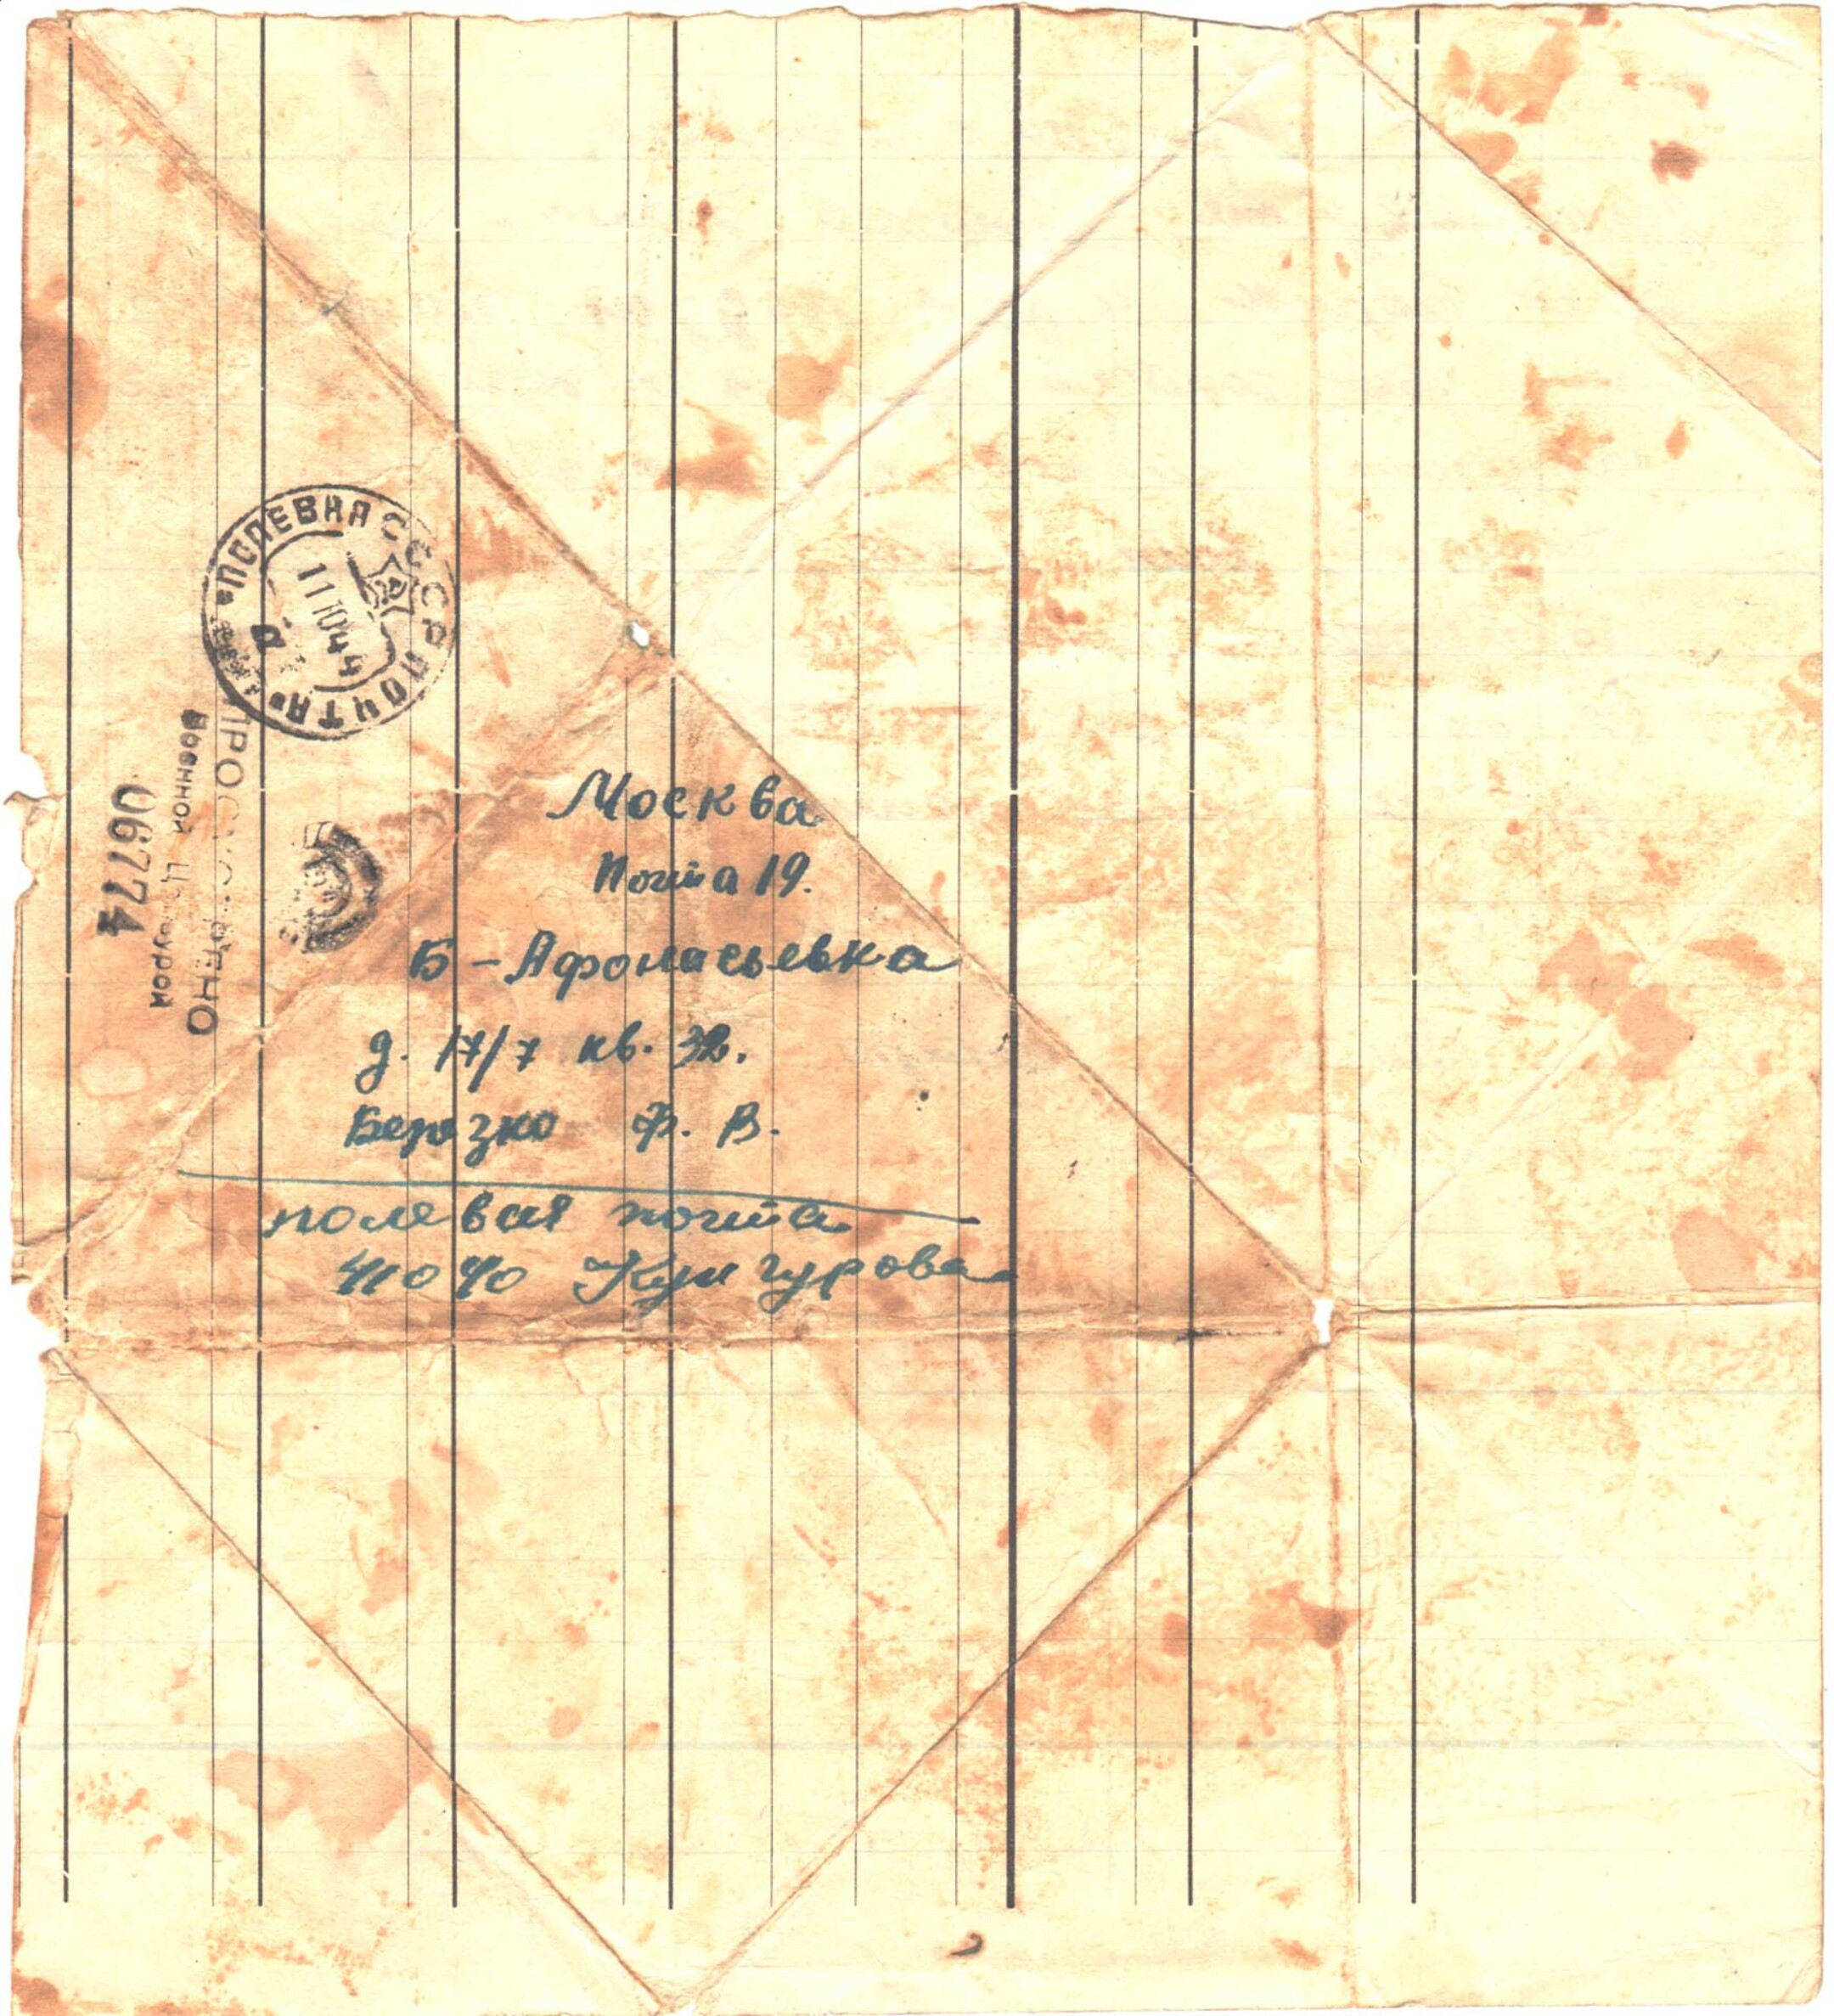 "ПОЛЕВАЯ ПОЧТА"
СССР
11 10 44
ПРОСМОТРЕНО
Военной Цензурой
06774
Москва
Почта 19.
Б-Афонасьевка
д. 17/7 кв. 32.
Березко Ф. В.
полевая почта
41040 Кунгурова